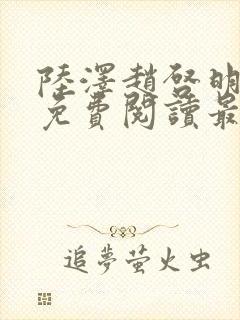 陸澤趙啓明
免費閱讀最
追夢萤火虫